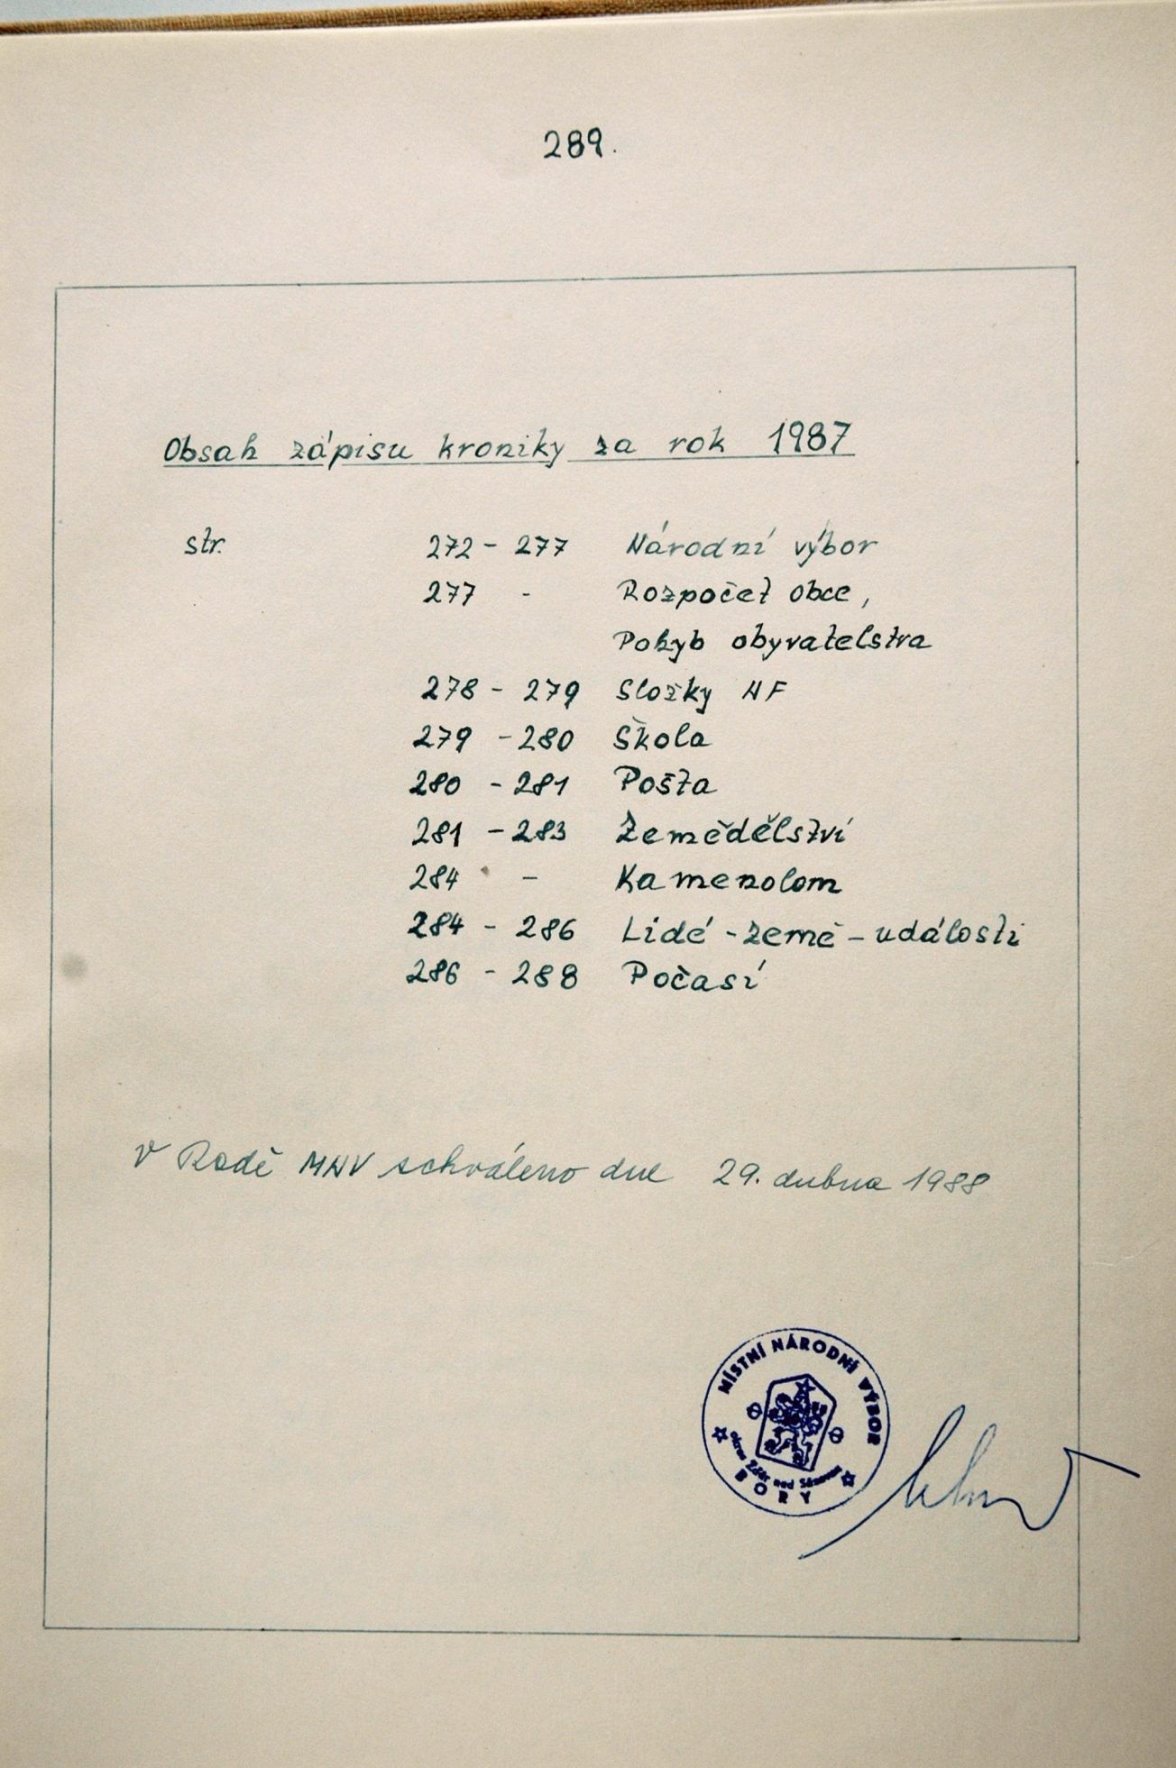 289.
Obsah zápisu kroniky za rok 1987
str. 272 - 277 Národní výbor
277 - Rozpočet obce,
Pohyb obyvatelstva
278 - 279 Složky NF
279 - 280 Škola
280 - 281 Pošta
281 - 283 Zemědělství
284 - Kamenolom
284 - 286 Lidé - země - události
286 - 288 Počasí
V Radě MNV schváleno dne 29. dubna 1988
MÍSTNÍ NÁRODNÍ VÝBOR
okres Žďár nad Sázavou
BORY